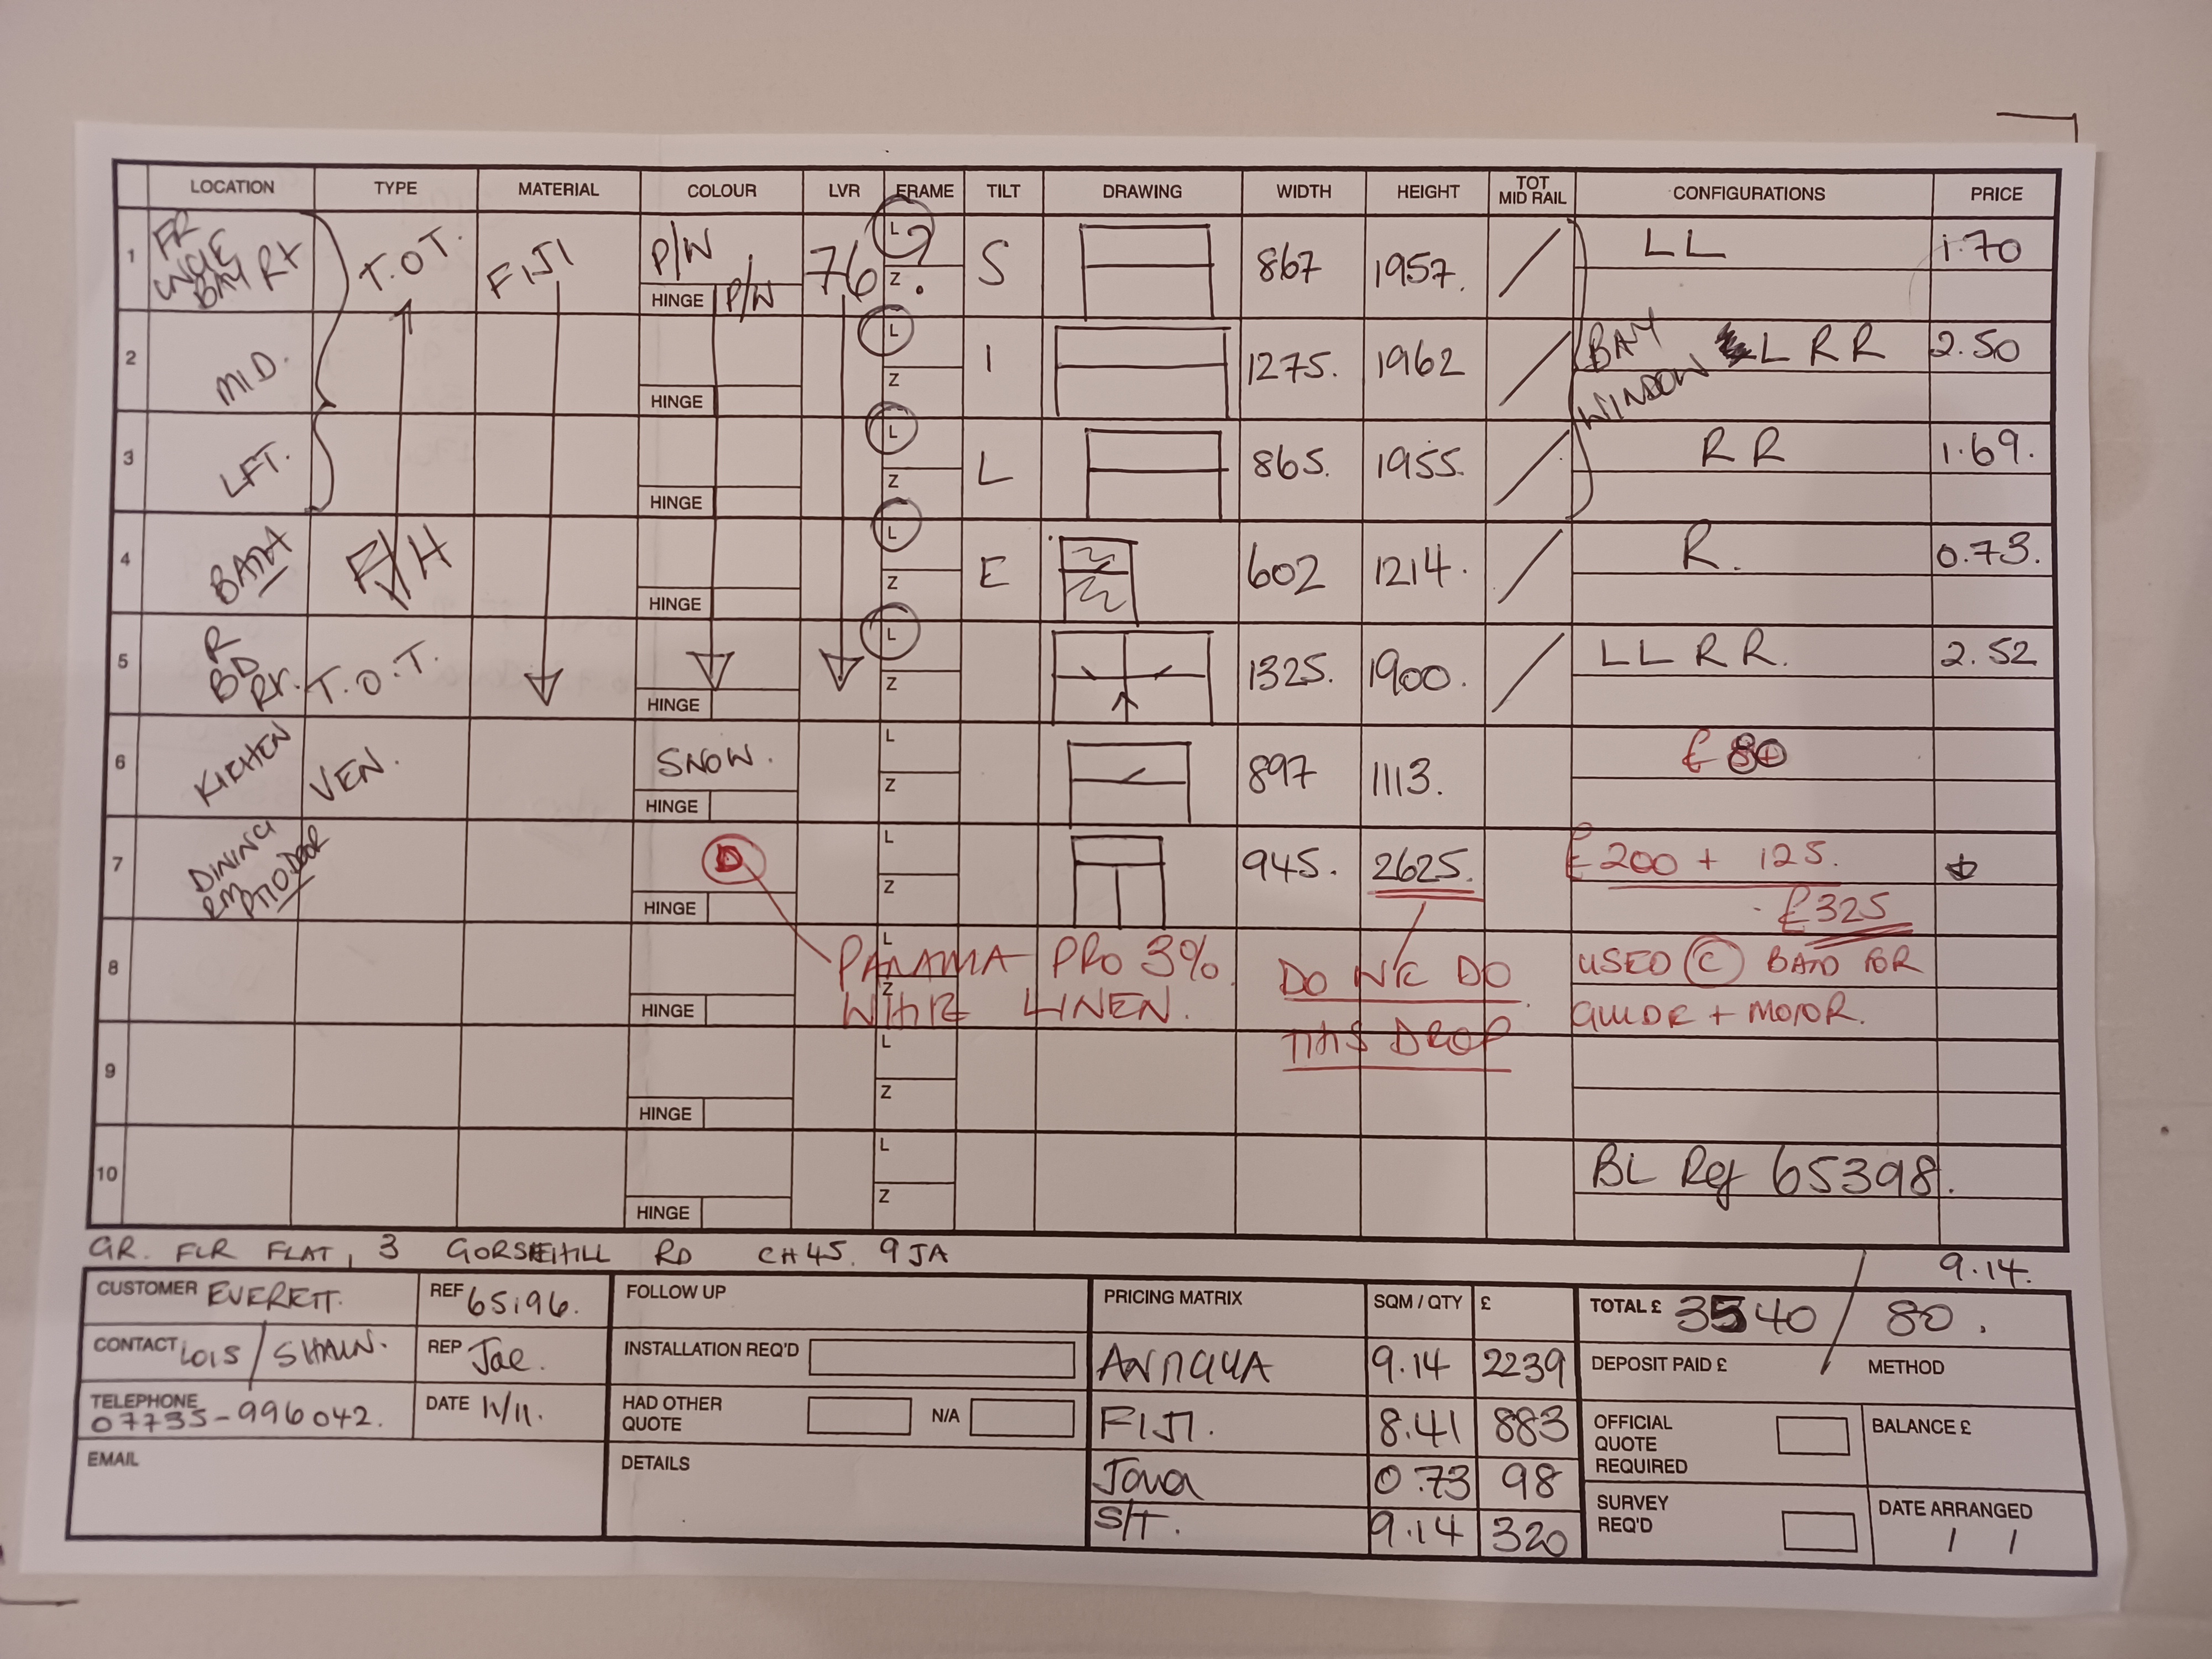 LOCATION TYPE MATERIAL COLOUR LVR FRAME TILT DRAWING WIDTH HEIGHT TOT MID RAIL CONFIGURATIONS PRICE
1 FR LNGE BAY RT T.O.T. FIJI P/W HINGE P/W 76 L ? Z S 867 1957. LL 1.70
2 MID. HINGE L Z I 1275. 1962 BAY WINDOW L R R 2.50
3 LFT. HINGE L Z L 865. 1955. R R 1.69.
4 BATH F/H HINGE L Z E 602 1214. R. 0.73.
5 R BD RT. T.O.T. HINGE L Z 1325. 1900. LL R R. 2.52
6 KITCHEN VEN. SNOW. HINGE L Z 897 1113. £80
7 DINING RM PTIO DOOR D HINGE L Z 945. 2625. £200 + 125.
£325
8 HINGE L Z PANAMA PRO 3% DO N/C DO USED C BAND FOR
WHITE LINEN. THIS DROP GUIDE + MOTOR.
9 HINGE L Z
10 HINGE L Z BL Ref 65398.
GR. FLR FLAT, 3 GORSEHILL RD CH45. 9JA 9.14.
CUSTOMER EVERETT. REF 65196. FOLLOW UP PRICING MATRIX SQM / QTY £ TOTAL £ 3540 / 80.
CONTACT LOIS / SHAUN. REP Jae. INSTALLATION REQ'D ANTIGUA 9.14 2239 DEPOSIT PAID £ METHOD
TELEPHONE 07735-996042. DATE 11/11. HAD OTHER QUOTE N/A FIJI. 8.41 883 OFFICIAL QUOTE REQUIRED BALANCE £
EMAIL DETAILS Java 0.73 98 SURVEY REQ'D DATE ARRANGED / /
S/T. 9.14 320